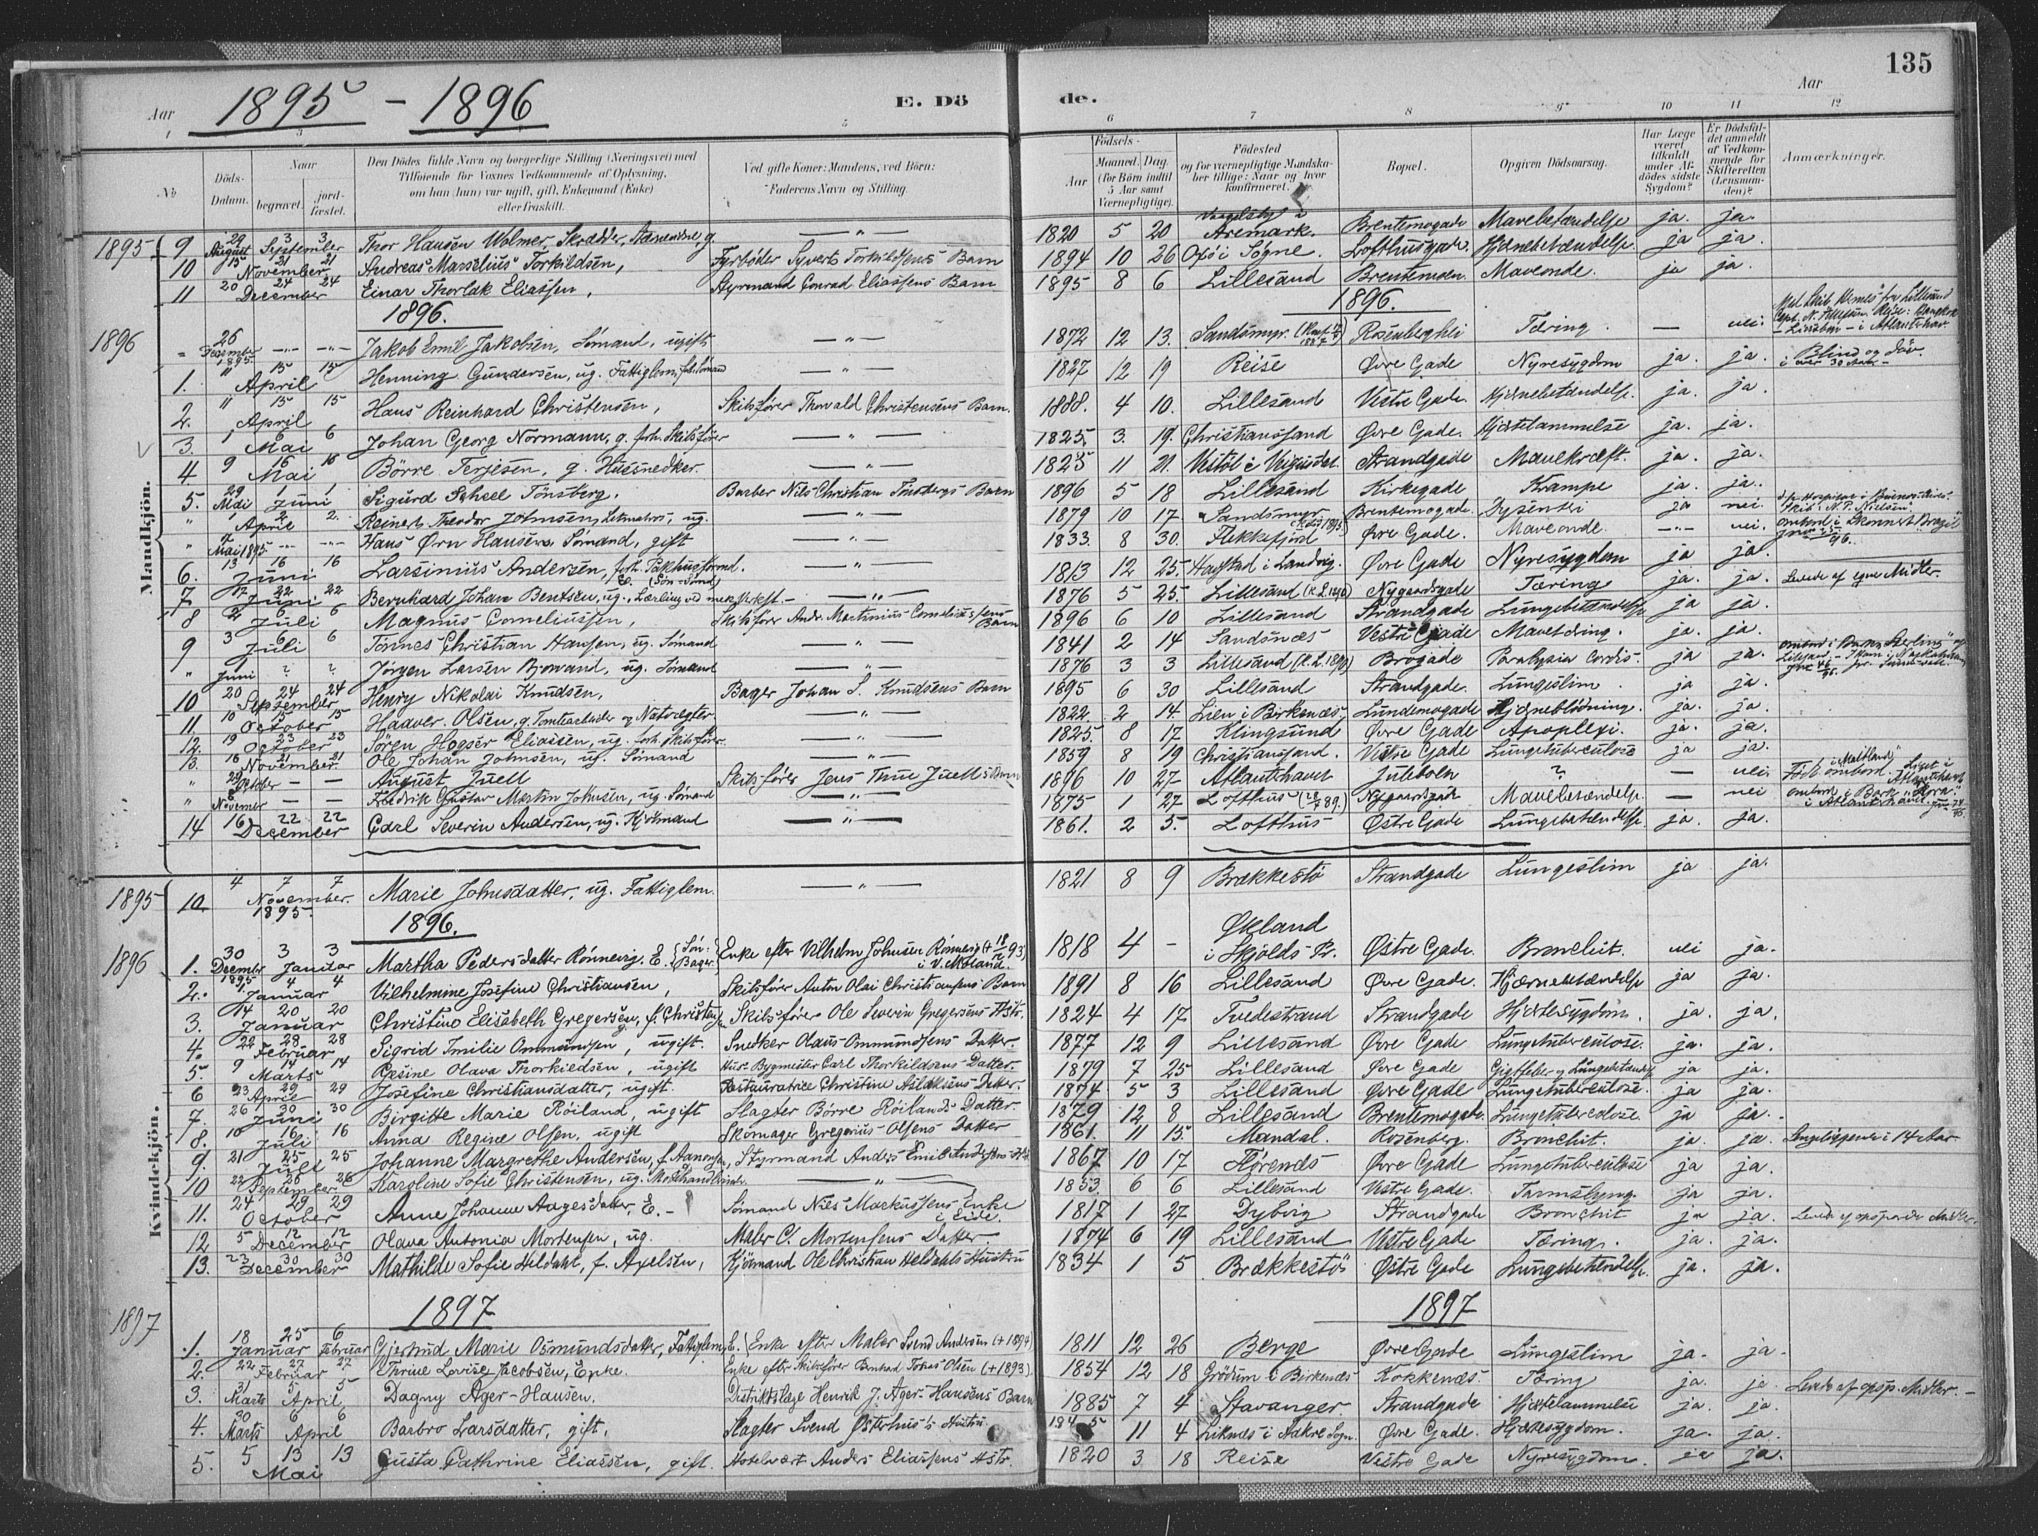 135
Aar 1895 - 1896 E. Dö de. Aar
1 3 5 6 7 8 9 10 11 12
No Döds-Datum. Naar begravet. jord-fæstet. Den Dödes fulde Navn og borgerlige Stilling (Næringsvei) med Tilföiende for Voxnes Vedkommende af Oplysning, om han (hun) var ugift, gift, Enkemand (Enke) eller fraskilt. Ved gifte Koner: Mandens, ved Börn: Faderens Navn og Stilling. Födsels- Aar Maaned. Dag. (for Börn indtil 5 Aar samt Værnepligtige). Födested og for værnepligtige Mandskaber tillige: Naar og hvor konfirmeret. Bopæl. Opgiven Dödsaarsag. Har Læge været tilkaldt under Afdödes sidste Sygdom? Er Dödsfaldet anmeldt af Vedkommende for Skifteretten (Lensmanden)? Anmærkninger.
Mandkjön.
1895 9 29 August 3 September 3 Thor Hansen Wolmer, Skrædder, g. — " — 1820 5 20 Aremark. Brentemogade Mavebetændelse ja. ja.
10 15 21 November 21 Andreas Marselius Torkildsen, Fyrbøder Syvert Torkildsens Barn 1894 10 26 Oxö i Søgne. Lofthusgade. Hjernebetændelse. ja ja.
11 20 24 December 24 Einar Thorlak Eliassen, Styrmand Conrad Eliassens Barn 1895 8 6 Lillesand Brentemoen Maveonde. ja ja.
1896. 1896.
1896 " 26 December 1895. — " — — " — Jakob Emil Jakobsen, Sømand, ugift — " — 1872 12 13. Sandsmyr. Rosenberghei Tæring. — nei.
1. " 15 April 15 Henning Gundersen, ug. Fattiglem, — " — 1827 12 19 Reise Øvre Gade Nyresygdom ja. ja. Blind og döv i over 30 Aar.
2. " 15 April 15 Hans Reinhard Christensen, Skibsfører Thorvald Christensens Barn. 1888. 4 10. Lillesand Vestre Gade. Hjernebetændelse. ja. ja.
3. 1 6 Mai 6 Johan Georg Normann, g. forh. Skibsfører — " — 1825. 3. 19. Christianssand Øvre Gade. Hjertelammelse ja. ja.
4 9 16 Mai 16 Börre Terjesen, g. Huussnedker. — " — 1825 11 21. Strandgade Mavekræft. ja. ja.
5. 29 Mai 1 Juni 1 Sigurd Scheel Tönsberg. Barber Nils Christian Tønsbergs Barn 1896 5 18 Lillesand Kirkegade Krampe ja. ja.
" 1 2 April 2. Reinert Theodor Johnsen, Letmatros, ug. — " — 1879 10 17 Sandsmyr Brentemogade. Dysenteri ja nei.
" 7 Mai 1895 — " — — " — Hans Ørn Hansen Sømand, gift — " — 1833. 8 30. Flekkefjord Øvre Gade. Maveonde. — " — nei.
6. 13 16 Juni 16 Larsinius Andersen, forh. Pakhusformd. E. — " — 1813 12 25. Hagstad i Landvig. Øvre Gade Nyresygdom ja ja.
7 17 22 Juni 22 Bernhard Johan Bentsen, ug. Lærling ved mek. Verkst. — " — 1876 5 25 Lillesand Nygaardsgade Tæring ja. ja. Levede af egne Midler.
8 2 6 Juli 6 Magnus Corneliussen, Skibsfører Andr. Martinius Corneliussens Barn 1896 6 10 Lillesand Strandgade Lungebetændelse ja ja.
9 3 6 Juli 6 Tönnes Christian Hansen, ug. Sømand — " — 1841 2 14 Sandsnæs Vestre Gade Mavetæring. ja. ja.
" 1 Juni ? ? Jörgen Larsen Bjorvand, ug. Sømand — " — 1876 3 3 Lillesand Brogade Paralysia Cordis. ja ja.
10 20 24 September 24 Henry Nikolai Knudsen, Bager Johan S. Knudsens Barn 1895 6 30 Lillesand Strandgade. Lungeslim. ja ja.
11 10 15 October 15 Haaver Olsen, g. Tomtearbeider og Natvægter — " — 1822. 2 14. Lien i Birkenæs. Lundemogade Hjerneblödning. ja. ja.
12. 19 23 October 23 Sören Hogser Eliassen, ug. forh. Skibsfører. — " — 1825 8 17 Klingsund Øvre Gade Apoplexi. ja. ja.
13. 16 21 November 21 Ole Johan Johnsen, ug. Sömand — " — 1859 8 19 Christianssand. Vestre Gade Lungetuberculose ja ja.
" 29 October — — August Juell Skibsfører Jens Thue Juells Barn 1896 10 27 Atlanterhavet Juleboln ? — nei.
" 8 November — — Fredrik Gustav Martin Johnsen, ug. Sömand — " — 1875 1 27 Lofthus Nygaardsgade Mavebetændelse. — nei
14 16 22 December 22 Carl Severin Andersen, ug. Kjörmand — " — 1861. 2 5. Lofthus Østre Gade Lungebetændelse. ja. ja.
Kvindekjön.
1895 10. 4 7 November. 1895. 7 Marie Johnsdatter, ug. Fattiglem. — " — 1821 8 9 Brækkestö Strandgade Lungeslim ja ja.
1896.
1896 1. 30 December 1895 3 Januar 3 Martha Pedersdatter Rönnevig. E. Enke efter Vilhelm Johnsen Rönnevig i V. Moland. 1818 4 — Økland i Skjolds Pr. Østre Gade. Bronchit. nei ja.
2. 1 4 Januar 4 Vilhelmine Josefine Christiansen, Skibsfører Anton Olai Christiansens Barn 1891 8 16 Lillesand Øvre Gade. Hjernebetændelse ja ja.
3. 14 20 Januar 20 Christine Elisabeth Gregersen, f. Christensen Skibsfører Ole Severin Gregersens Hstr. 1824 4 17 Tvedestrand Strandgade Hjertesygdom. ja. ja.
4. 22 28 Februar 28 Sigrid Emilie Ommundsen, ugift. Snedker Olaus Ommundsens Datter. 1877 12 9 Lillesand Øvre Gade Lungetuberculose. ja. ja.
5. 9 14 Marts 14 Gesine Olava Thorkildsen, ugift Hus-Bygmester Carl Thorkildsens Datter. 1879 7 25 Lillesand Øvre Gade Gigtfeber og Lungebetændelse ja ja.
6 23 29 April 29 Josefine Christiansdatter, ugift. Restauratrice Christine Aslaksens Datter. 1874. 5 3 Lillesand Øvre Gade Lungetuberculose. ja ja.
7. 26 30 Juni 30 Birgitte Marie Röiland, ugift Slagter Börre Röilands Datter. 1879 12 8 Lillesand Brentemogade. Lungetuberculose. ja ja.
8. 10 16 Juli 16 Anna Regine Olsen, ugift Skomager Gregorius Olsens Datter 1861. 11 15. Mandal. Rosenberg. Bronchit. ja. ja. Sengeliggende i 14 Aar
9. 21 25 Juli 25 Johanne Margrethe Andersen, f. Aanonsen, Styrmand Anders Emil Andersens Hst. 1867 10 17 Hørenæs Øvre Gade Lungetuberculose ja ja.
10 22 26 September 26 Karoline Sofie Christensen, ug. Modehandlerinde — " — 1853. 6 6 Lillesand Vestre Gade. Tarmslyng. ja ja.
11. 24 29 October 29 Anne Johanne Aagesdatter, E. — Sömand Niels Markussens Enke i Eide. 1817 1 27 Dybvig Strandgade Bronchit ja ja. Levede af opsparede Midler.
12 5 12 December 12 Olava Antonia Mortensen, ug. Maler C. Mortensens Datter 1874 6 19 Lillesand Vestre Gade Tæring. ja. ja.
13. 23 30 December 30 Mathilde Sofie Heldahl, f. Axelsen, Kjörmand Ole Christian Heldahls Hustru 1834 1 5 Brækkestö Østre Gade Lungebetændelse. ja. ja.
1897 1897
1897 1. 18 Januar 25 6 Februar Gjertrud Marie Osmundsdatter, Fattiglem, E. Enke efter Maler Svend Andersen (+ 1894) 1811 12 26 Berge Øvre Gade Lungeslim ja. ja.
2. 22 27 Februar 27 Thrine Lovise Jacobsen, Enke. Enke efter Skibsfører Bernhard Tobias Olsen (+ 1893) 1854 12 18 Grödum i Birkenæs Kokkenæs Tæring ja. ja. Levede af opsp. Midler.
3. 31 Marts 5 April 5 Dagny Ager-Hansen. Distriktslæge Henrik J. Ager-Hansens Barn 1885 7 4 Stavanger Strandgade Hjertelammelse ja. ja.
4. 30 Marts 6 April 6 Barbro Larsdatter, gift, Slagter Svend Østerhus's Hustru 1845 11 4 Liknæs i Sogn. Øvre Gade. Hjertesygdom. ja. ja.
5. 5 13 Mai 13 Gusta Cathrine Eliassen, gift. Hotelvært Anders Eliassens Hstr. 1820 3 18 Reise Vestre Gade Nyresygdom. ja ja.